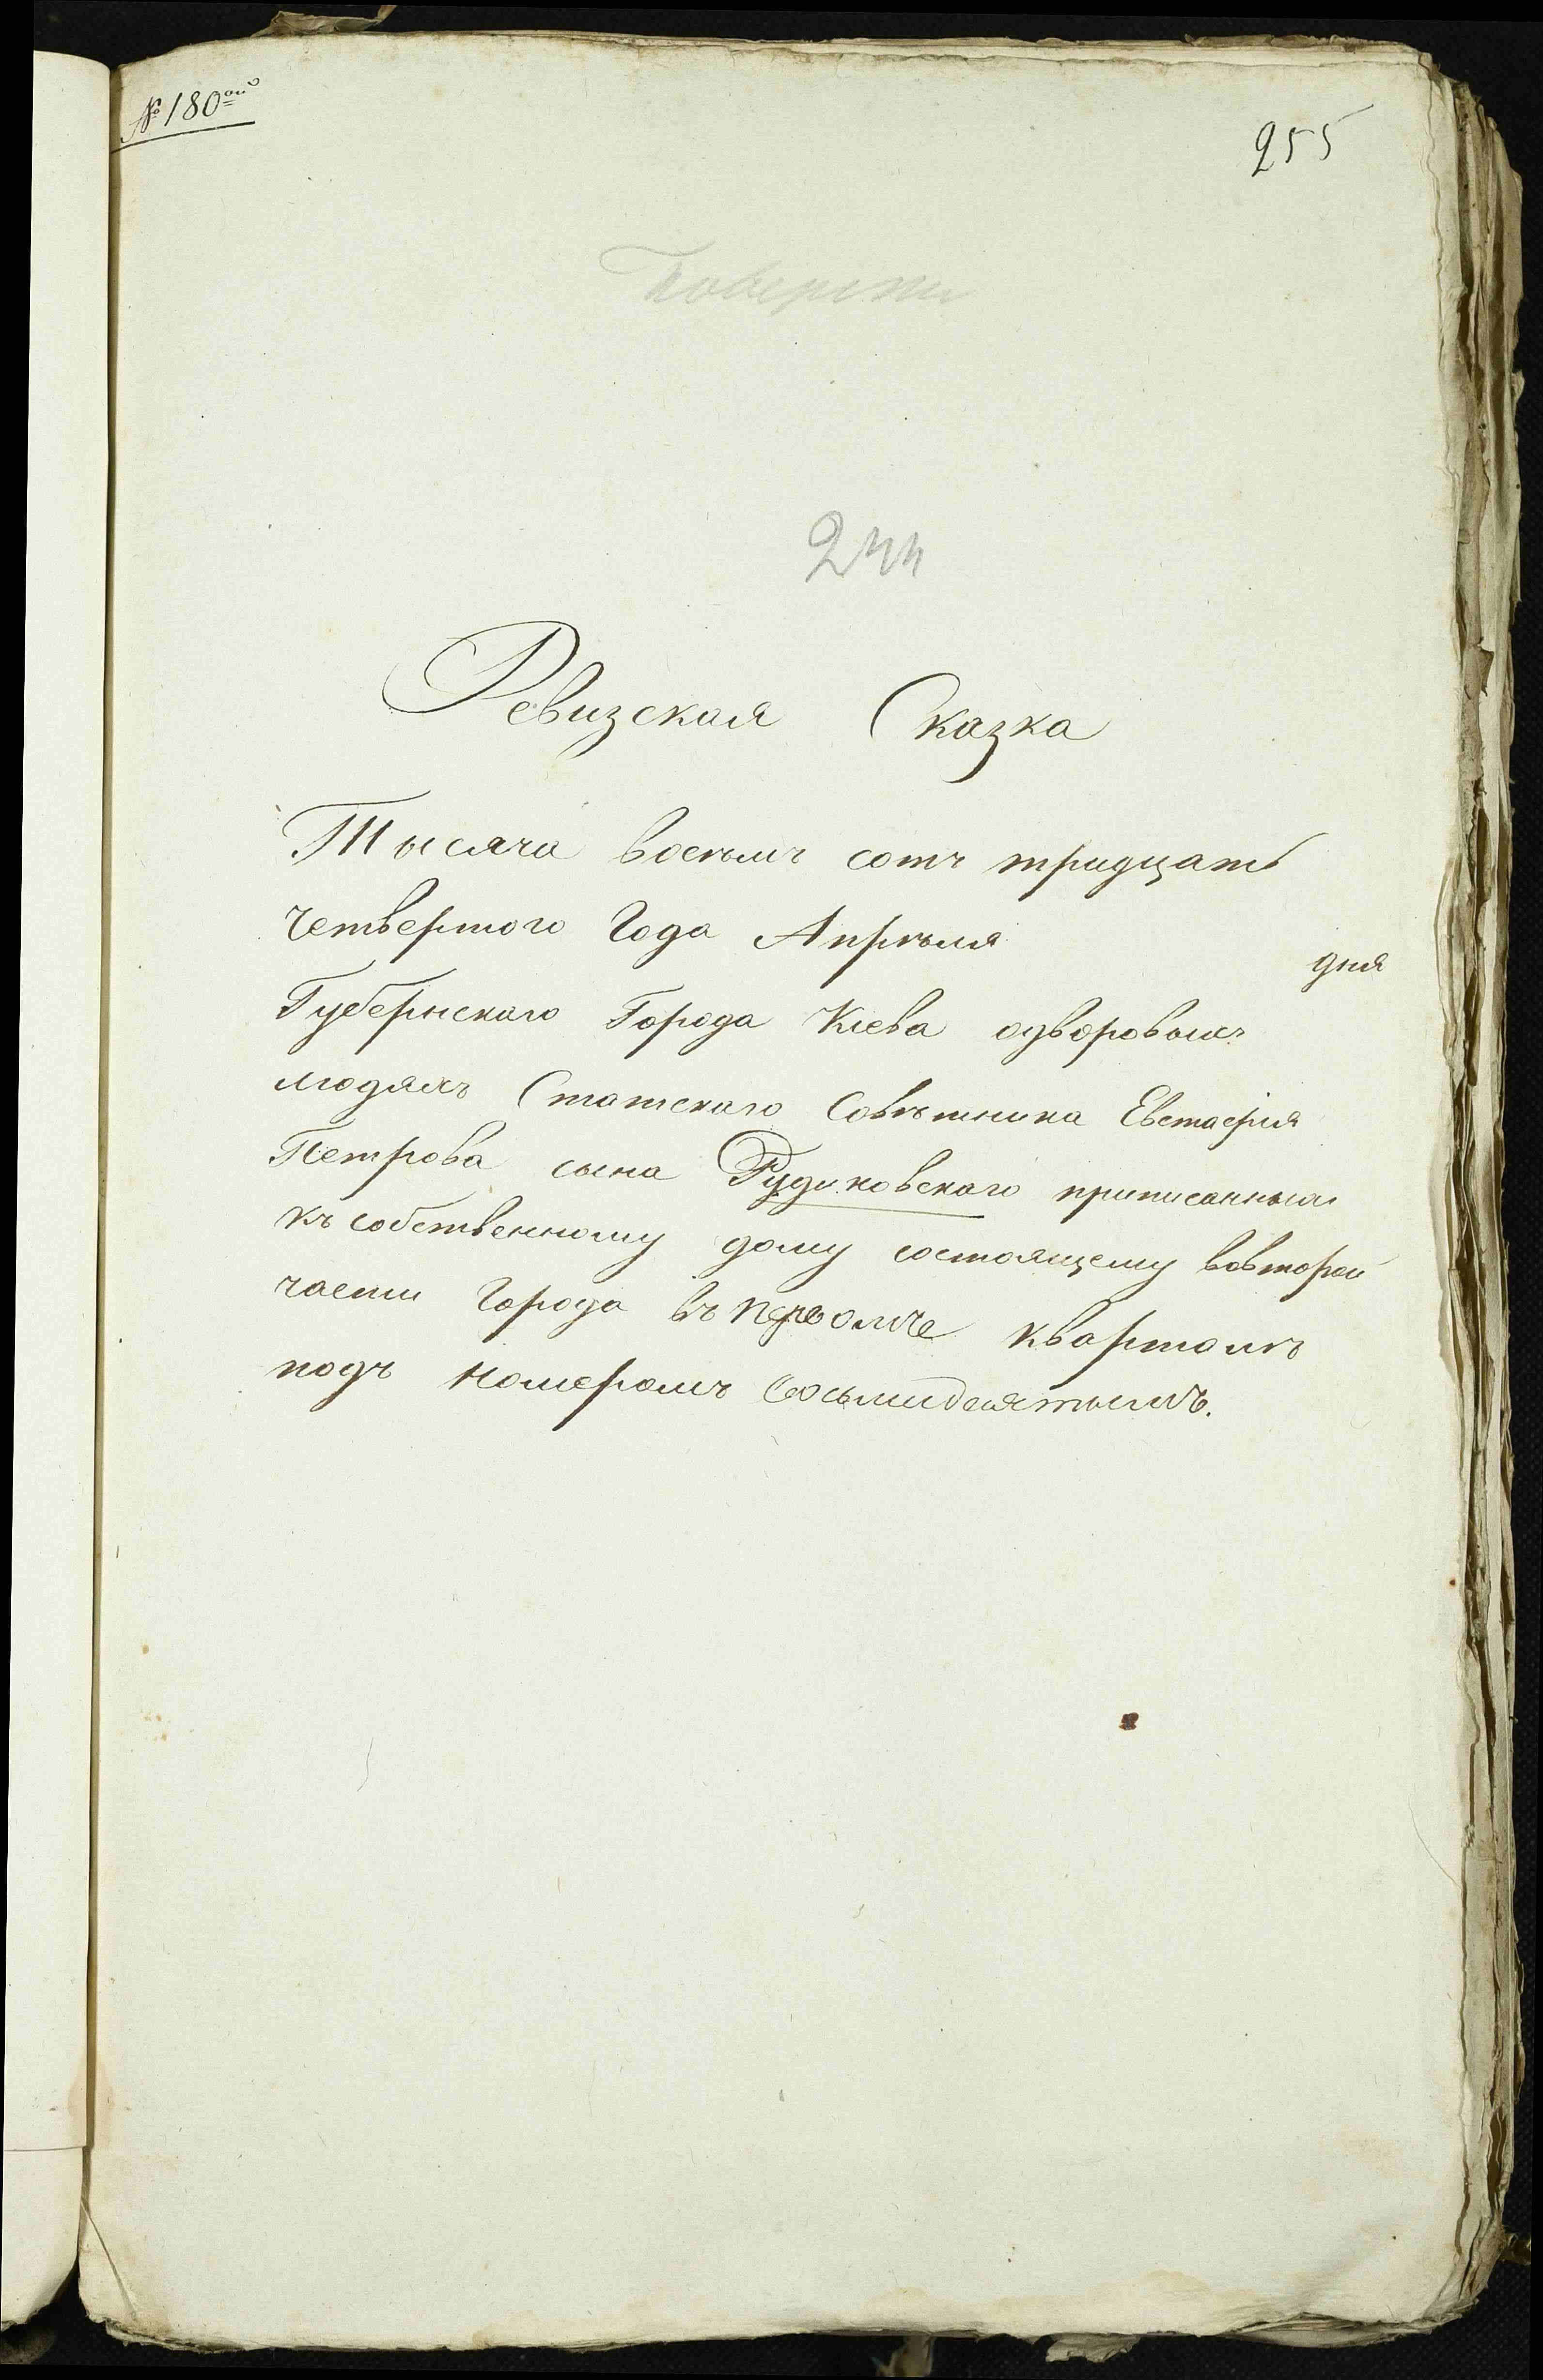 № 180ой
255
Поверхни
244
Ревизская Сказка
Тысяча восемъ сотъ тридцать
четвертого Года Апрѣля дня
Губернскаго Города Кіева одворовыхъ
людяхъ Статскаго Совѣтника Евстафія
Петрова сына Рудиковскаго приписанныхъ
къ собственному дому состоящему вовторой
части Города въ первомъ кварталѣ
подъ номеромъ восьмидесятымъ.